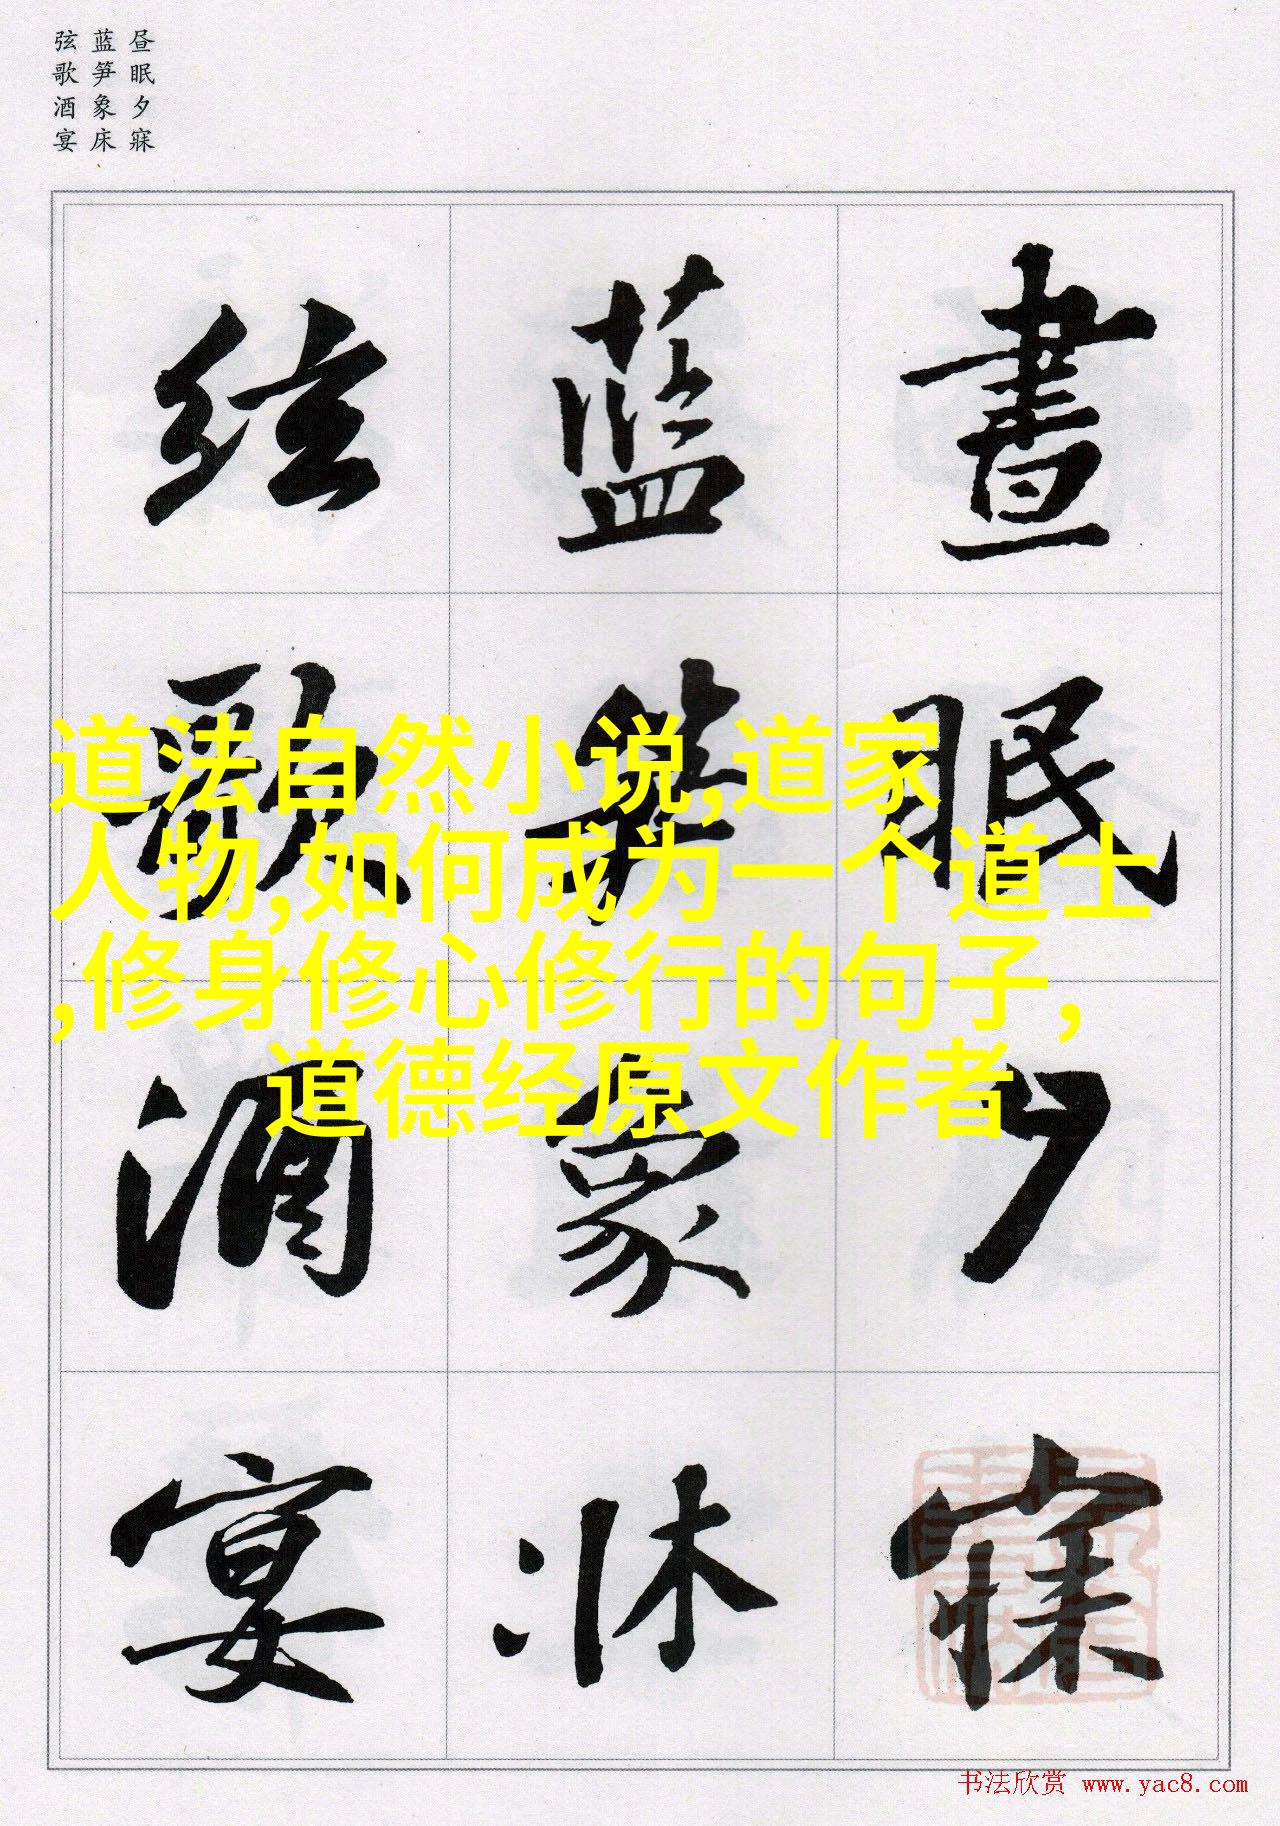 昼眠夕寐
蓝笋象床
弦歌酒宴
晝眠夕寐
藍笋象牀
絃歌酒宴
道法自然小说,道家
人物,如何成为一个道士
,修身修心修行的句子，
道德经原文作者
书法欣赏 www.yac8.com